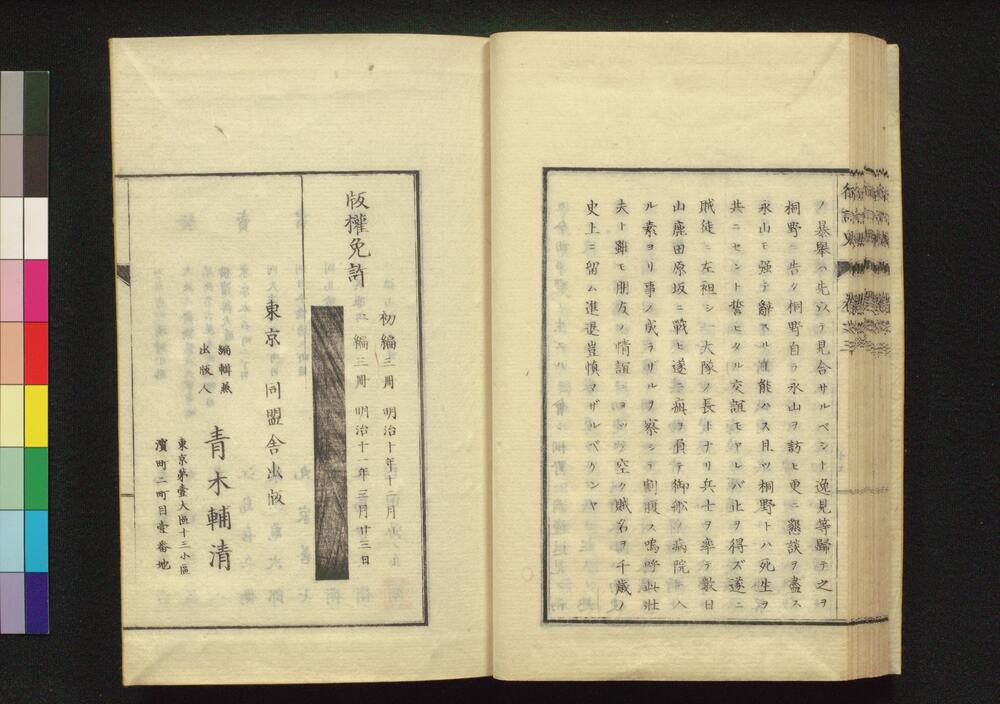 ノ暴擧ハ先ヅヲ見合サルベシト逸見等歸テ之ヲ
桐野ニ告ク桐野自ラ永山ヲ訪ヒ更ニ懇談ヲ盡ス
永山モ強テ辭スル直能ハス且ツ桐野トハ死生ヲ
共ニセント誓ヒタル交誼モヤレバ止ヲ得ズ遂ニ
賊徒ニ左袒シ一大隊ノ長トナリ兵士ヲ率テ數日
山鹿田原坂ニ戰ヒ遂ニ痍ヲ負テ御船ノ病院ニ入
ル素ヨリ事ノ成ラザルヲ察シテ割腹ス嗚呼此壯
夫ト雖モ朋友ノ情誼ニヨツテ空ク賊名ヲ千歳ノ
史上ニ留ム進退豈愼マザルベケンヤ
版權免許
初編三周 明治十年十二月
二編三周 明治十一年三月廿三日
東京 同盟舍出版
編輯兼
出版人
青木輔清
東京第壹大區十三小區
濱町二町目壹番地